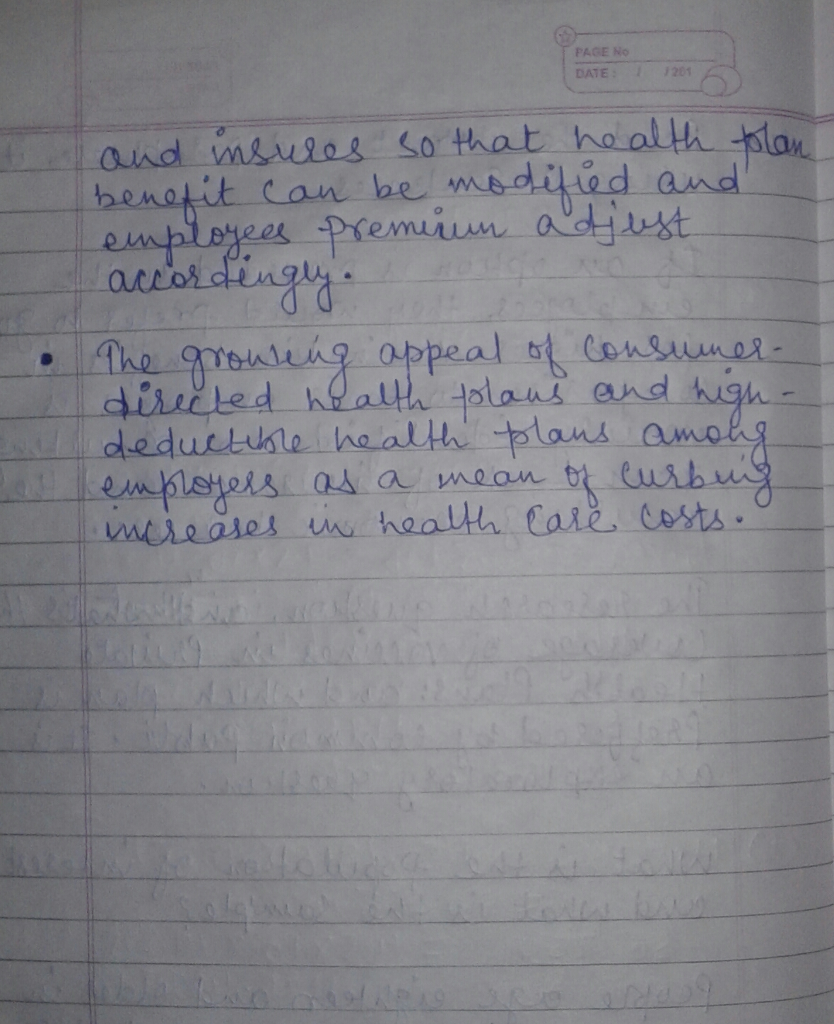 PAGE No
DATE: / /201
and insures so that health plan
benefit can be modified and
employees premium adjust
accordingly.
• The growing appeal of consumer-
directed health plans and high-
deductible health plans among
employers as a mean of curbing
increases in health care costs.